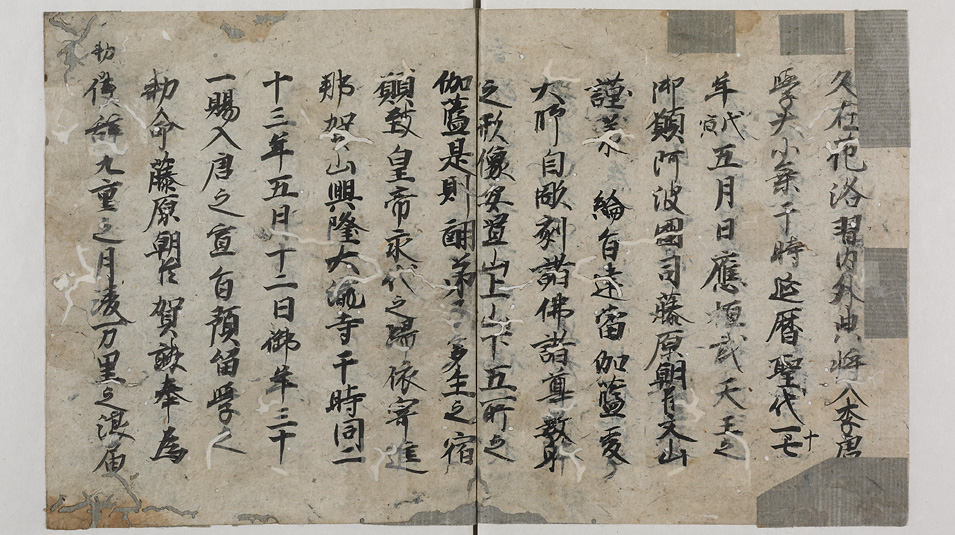 久在花洛習内外典將入李唐
學大小乘于時延暦聖代一七十
年戊寅五月日應桓武天王之
御願阿波國司藤原朝臣文山
謹奉 綸旨建密伽藍爰
大師自彫刻諸佛諸尊數躰
之形像安置山上山下五一所之
伽藍是則酬弟子多生之宿
願鼓皇帝永代之歸依寄進
那賀山興隆大瀧寺于時同二
十三年五月十二日御年三十
一賜入唐之宣旨預留學之
勅命藤原朝臣賀能奉為
勅使辞九重之月凌万里之浪